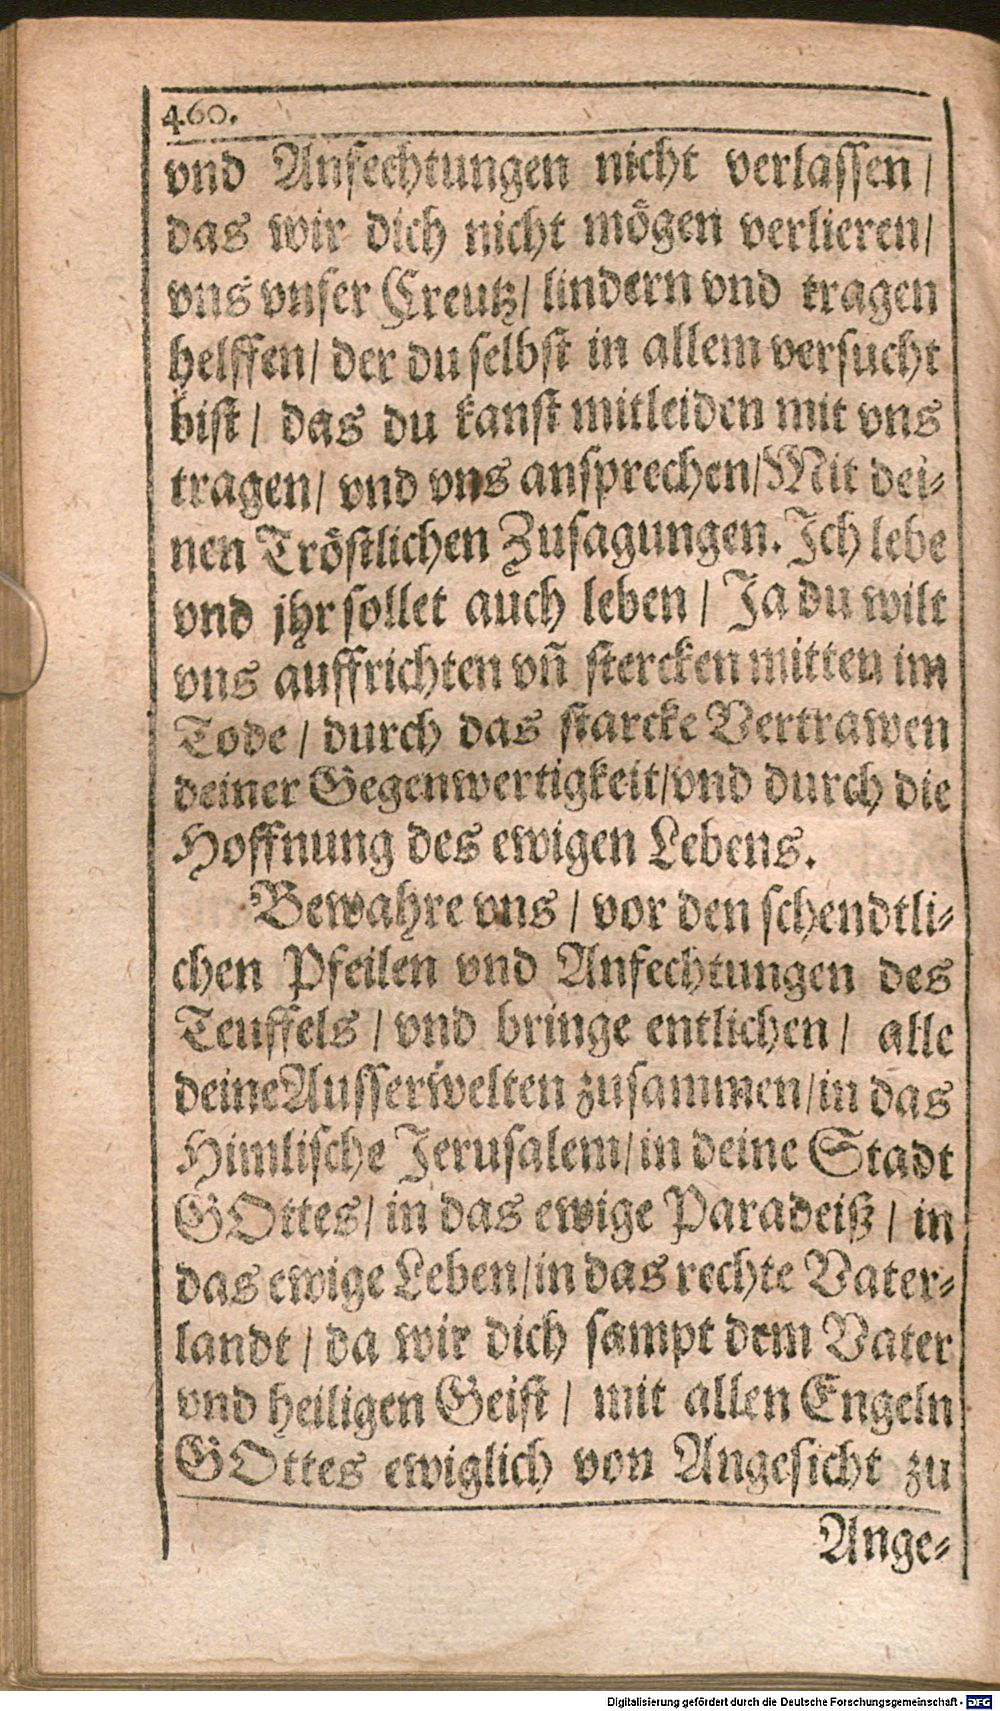 460.
vnd Anfechtungen nicht verlassen /
das wir dich nicht mögen verlieren/
vns vnser Creutz/ lindern vnd tragen
helffen/ der du selbst in allem versucht
bist / das du kanst mitleiden mit vns
tragen/ vnd vns ansprechen/Mit dei-
nen Tröstlichen Zusagungen. Ich lebe
vnd jhr sollet auch leben / Ja du wilt
vns auffrichten vñ stercken mitten im
Tode / durch das starcke Vertrawen
deiner Gegenwertigkeit/vnd durch die
Hoffnung des ewigen Lebens.
Bewahre vns / vor den schendtli-
chen Pfeilen vnd Anfechtungen des
Teuffels / vnd bringe entlichen / alle
deine Ausserwelten zusammen/in das
Himlische Jerusalem/in deine Stadt
GOttes/ in das ewige Paradeiß / in
das ewige Leben/in das rechte Vater-
landt / da wir dich sampt dem Vater
vnd heiligen Geist / mit allen Engeln
GOttes ewiglich von Angesicht zu
Ange-
Digitalisierung gefördert durch die Deutsche Forschungsgemeinschaft - DFG